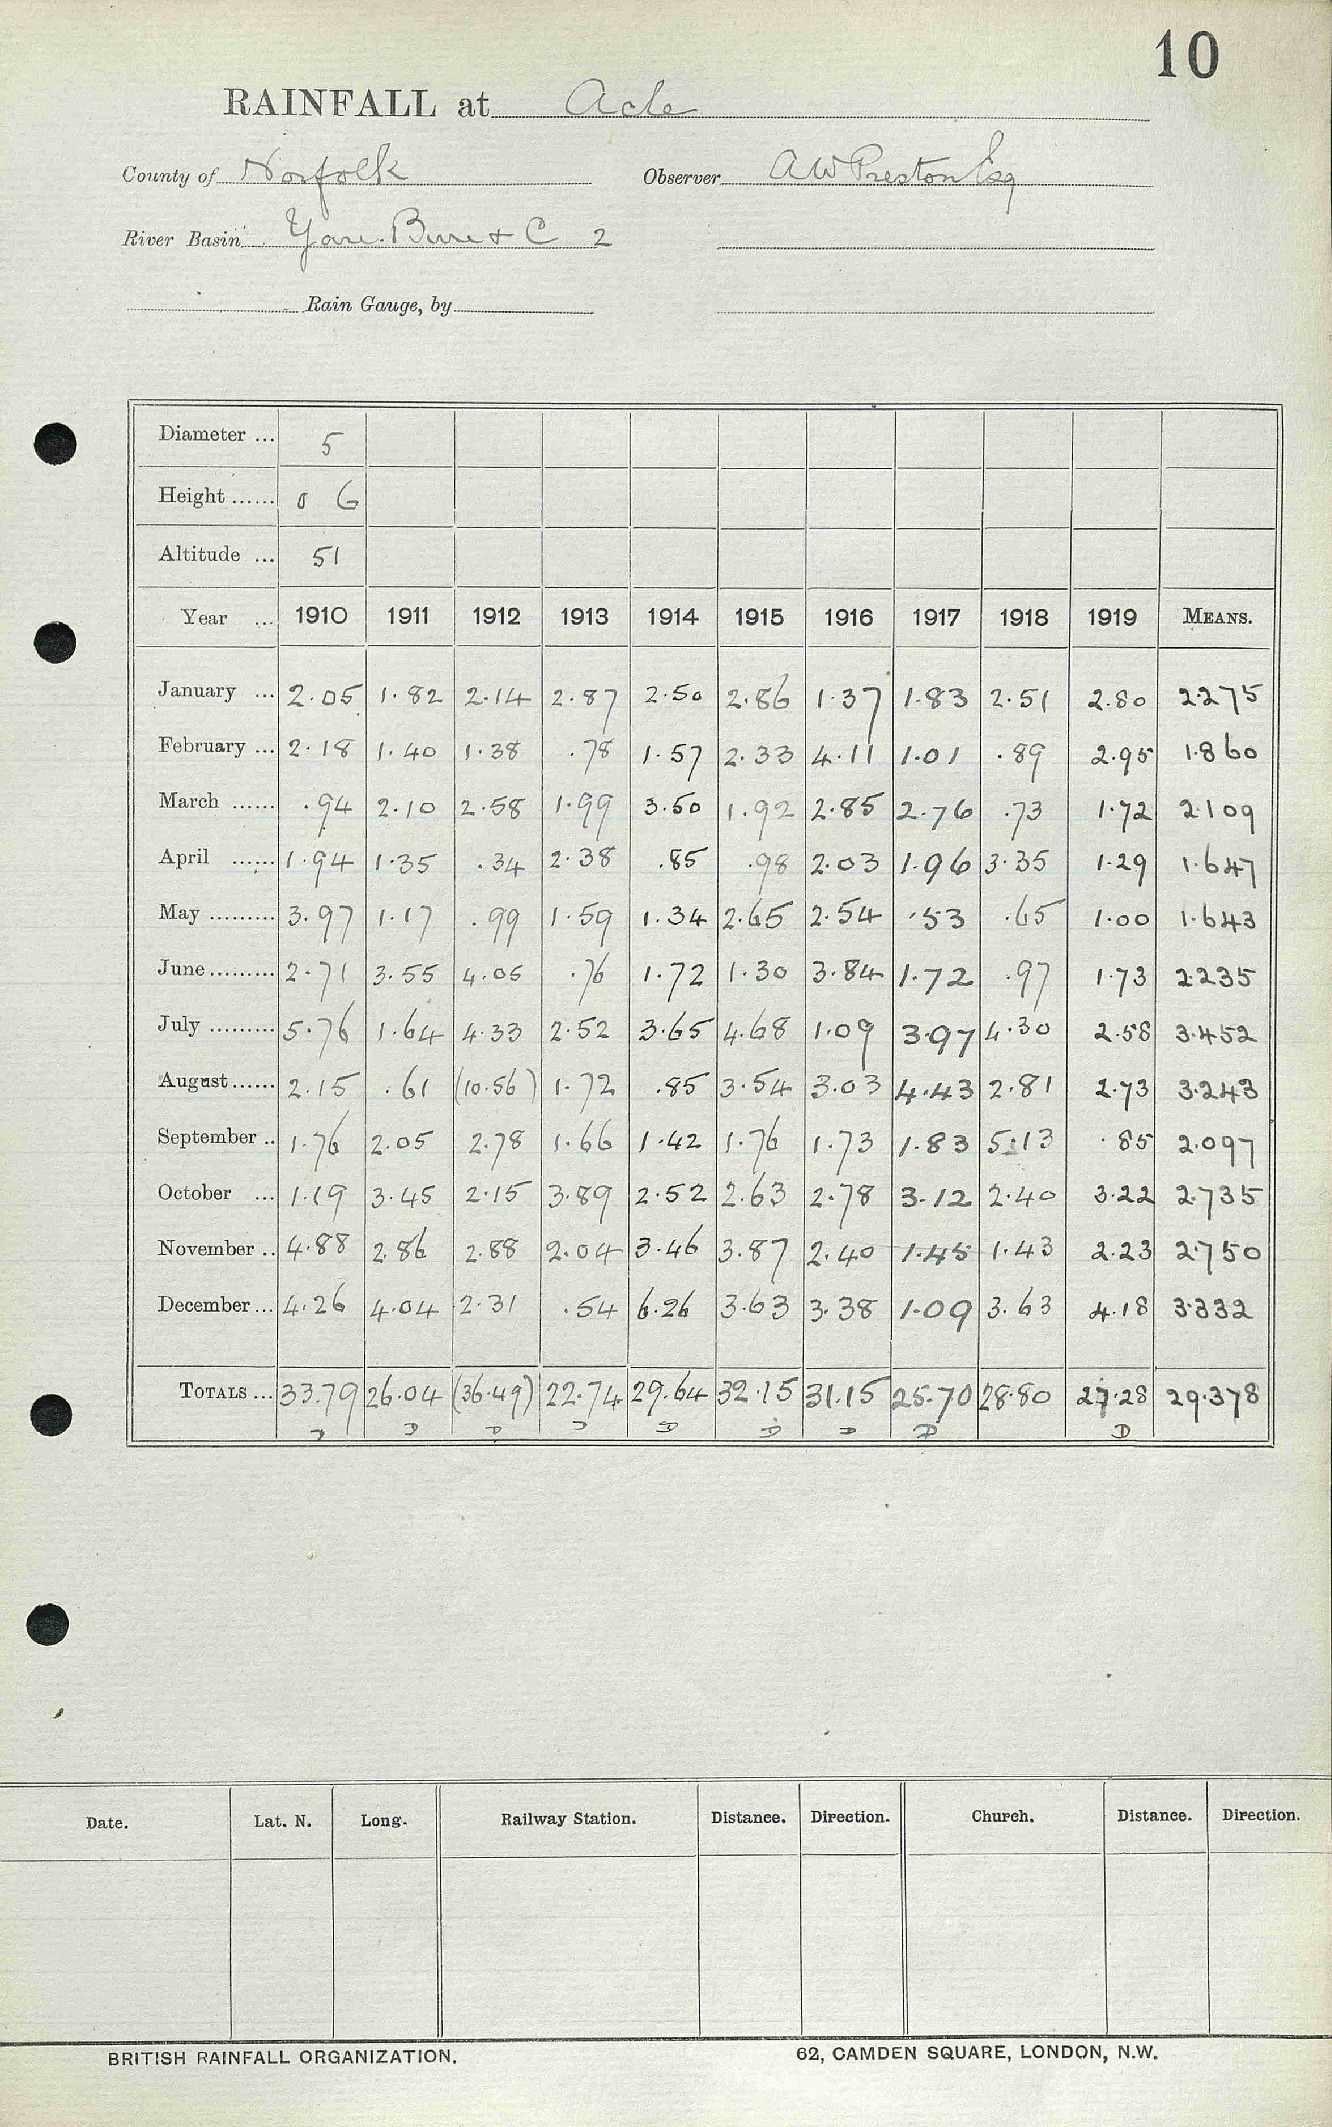 10
RAINFALL at Acle
County of Norfolk Observer A W Preston Esq
River Basin Yare. Bure & C 2
Rain Gauge, by
Diameter ... 5
Height ...... 0 6
Altitude ... 51
Year ... 1910 1911 1912 1913 1914 1915 1916 1917 1918 1919 MEANS.
January ... 2.05 1.82 2.14 2.87 2.50 2.86 1.37 1.83 2.51 2.80 2.275
February ... 2.18 1.40 1.38 .78 1.57 2.33 4.11 1.01 .89 2.95 1.860
March ...... .94 2.10 2.58 1.99 3.50 1.92 2.85 2.76 .73 1.72 2.109
April ...... 1.94 1.35 .34 2.38 .85 .98 2.03 1.96 3.35 1.29 1.647
May ......... 3.97 1.17 .99 1.59 1.34 2.65 2.54 .53 .65 1.00 1.643
June ......... 2.71 3.55 4.05 .76 1.72 1.30 3.84 1.72 .97 1.73 2.235
July ......... 5.76 1.64 4.33 2.52 3.65 4.68 1.09 3.97 4.30 2.58 3.452
August ...... 2.15 .61 (10.56) 1.72 .85 3.54 3.03 4.43 2.81 2.73 3.243
September .. 1.76 2.05 2.78 1.66 1.42 1.76 1.73 1.83 5.13 .85 2.097
October ... 1.19 3.45 2.15 3.89 2.52 2.63 2.78 3.12 2.40 3.22 2.735
November .. 4.88 2.86 2.88 2.04 3.46 3.87 2.40 1.45 1.43 2.23 2.750
December ... 4.26 4.04 2.31 .54 6.26 3.63 3.38 1.09 3.63 4.18 3.332
TOTALS ... 33.79 26.04 (36.49) 22.74 29.64 32.15 31.15 25.70 28.80 27.28 29.378
D D D D D D D D D
Date. Lat. N. Long. Railway Station. Distance. Direction. Church. Distance. Direction.
BRITISH RAINFALL ORGANIZATION. 62, CAMDEN SQUARE, LONDON, N.W.